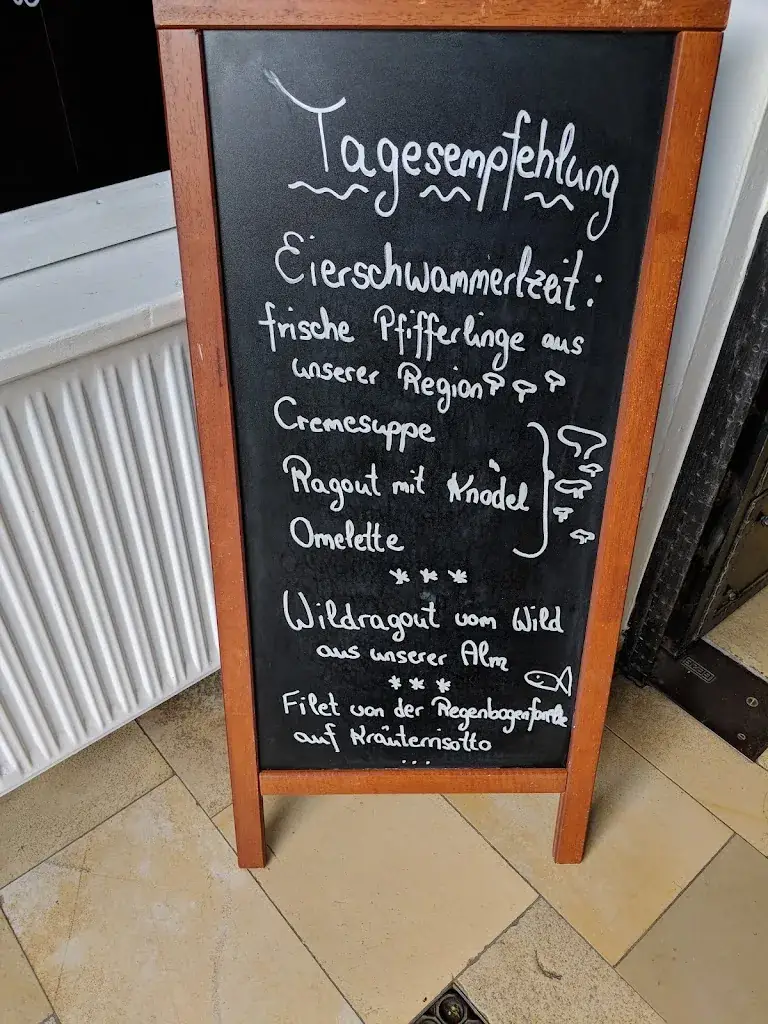 Tagesempfehlung
Eierschwammerlzeit:
frische Pfifferlinge aus
unserer Region
Cremesuppe
Ragout mit Knödel
Omelette
***
Wildragout vom Wild
aus unserer Alm
***
Filet von der Regenbogenforelle
auf Kräuterrisotto
...